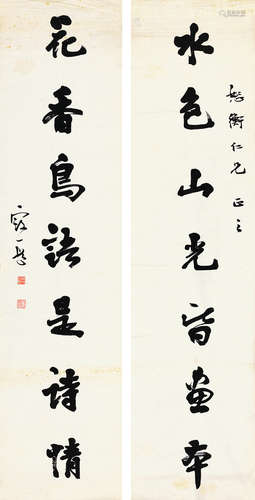 水色山光皆画本
衡仁兄正之
花香鳥語是诗情